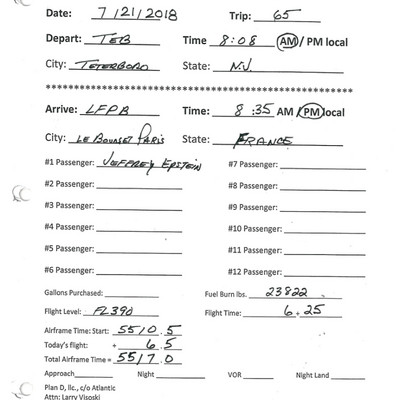 Date: 7/21/2018 Trip: 65
Depart: TEB Time 8:08 AM / PM local
City: TETERBORO State: N.J.
********************************************************
Arrive: LFPB Time: 8:35 AM / PM local
City: LE BOURGET PARIS State: FRANCE
#1 Passenger: JEFFREY EPSTEIN #7 Passenger:
#2 Passenger: #8 Passenger:
#3 Passenger: #9 Passenger:
#4 Passenger: #10 Passenger:
#5 Passenger: #11 Passenger:
#6 Passenger: #12 Passenger:
Gallons Purchased: Fuel Burn lbs. 23822
Flight Level: FL390 Flight Time: 6+25
Airframe Time: Start: 5510.5
Today's flight: + 6.5
Total Airframe Time = 5517.0
Approach Night VOR Night Land
Plan D, llc., c/o Atlantic
Attn: Larry Visoski